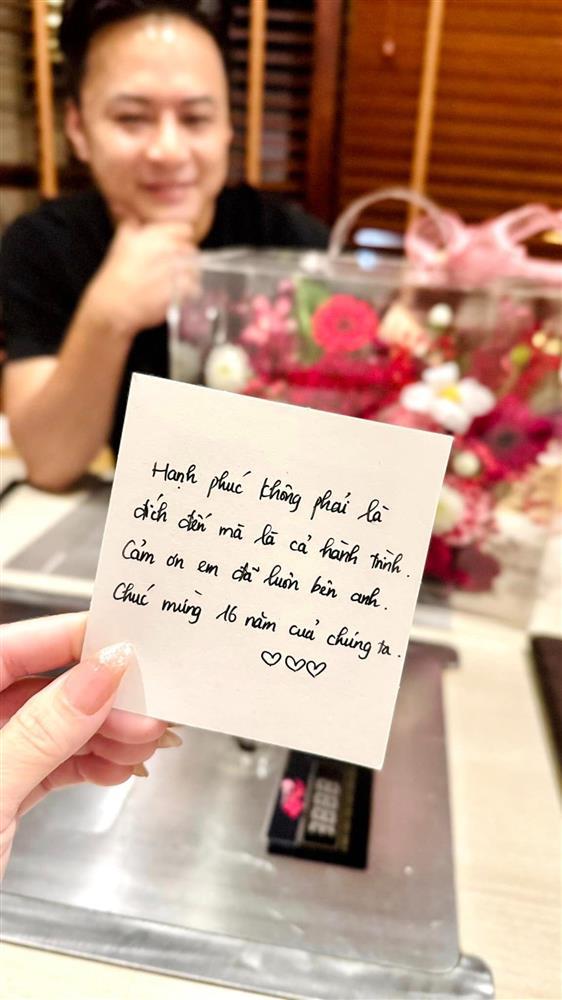 Hạnh phúc không phải là
đích đến mà là cả hành trình.
Cảm ơn em đã luôn bên anh.
Chúc mừng 16 năm của chúng ta.